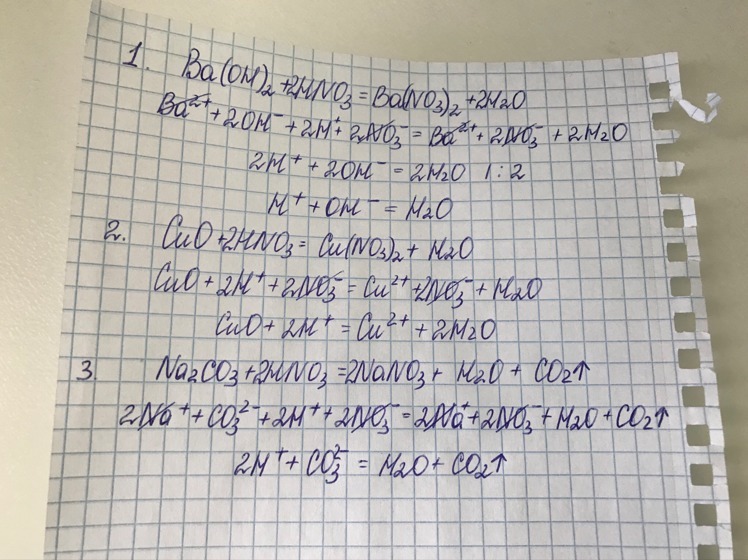 1. Ba(OH)₂+2HNO₃=Ba(NO₃)₂+2H₂O
Ba²⁺+2OH⁻+2H⁺+2NO₃⁻=Ba²⁺+2NO₃⁻+2H₂O
2H⁺+2OH⁻=2H₂O 1:2
H⁺+OH⁻=H₂O
2. CuO+2HNO₃=Cu(NO₃)₂+H₂O
CuO+2H⁺+2NO₃⁻=Cu²⁺+2NO₃⁻+H₂O
CuO+2H⁺=Cu²⁺+2H₂O
3. Na₂CO₃+2HNO₃=2NaNO₃+H₂O+CO₂↑
2Na⁺+CO₃²⁻+2H⁺+2NO₃⁻=2Na⁺+2NO₃⁻+H₂O+CO₂↑
2H⁺+CO₃²⁻=H₂O+CO₂↑